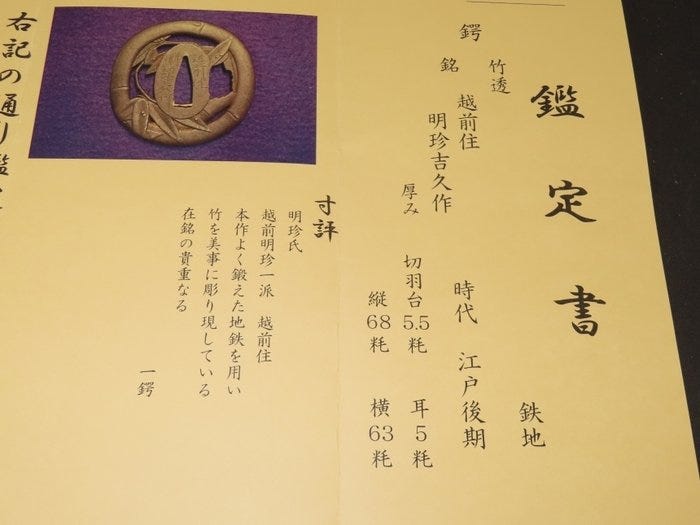 鑑定書
鉄地
鍔 竹透
銘 越前住
明珍吉久作
時代 江戸後期
厚み 切羽台 5.5粍 耳 5粍
縦 68粍 横 63粍
寸評
明珍氏
越前明珍一派 越前住
本作よく鍛えた地鉄を用い
竹を美事に彫り現している
在銘の貴重なる
一鍔
右記の通り鑑定